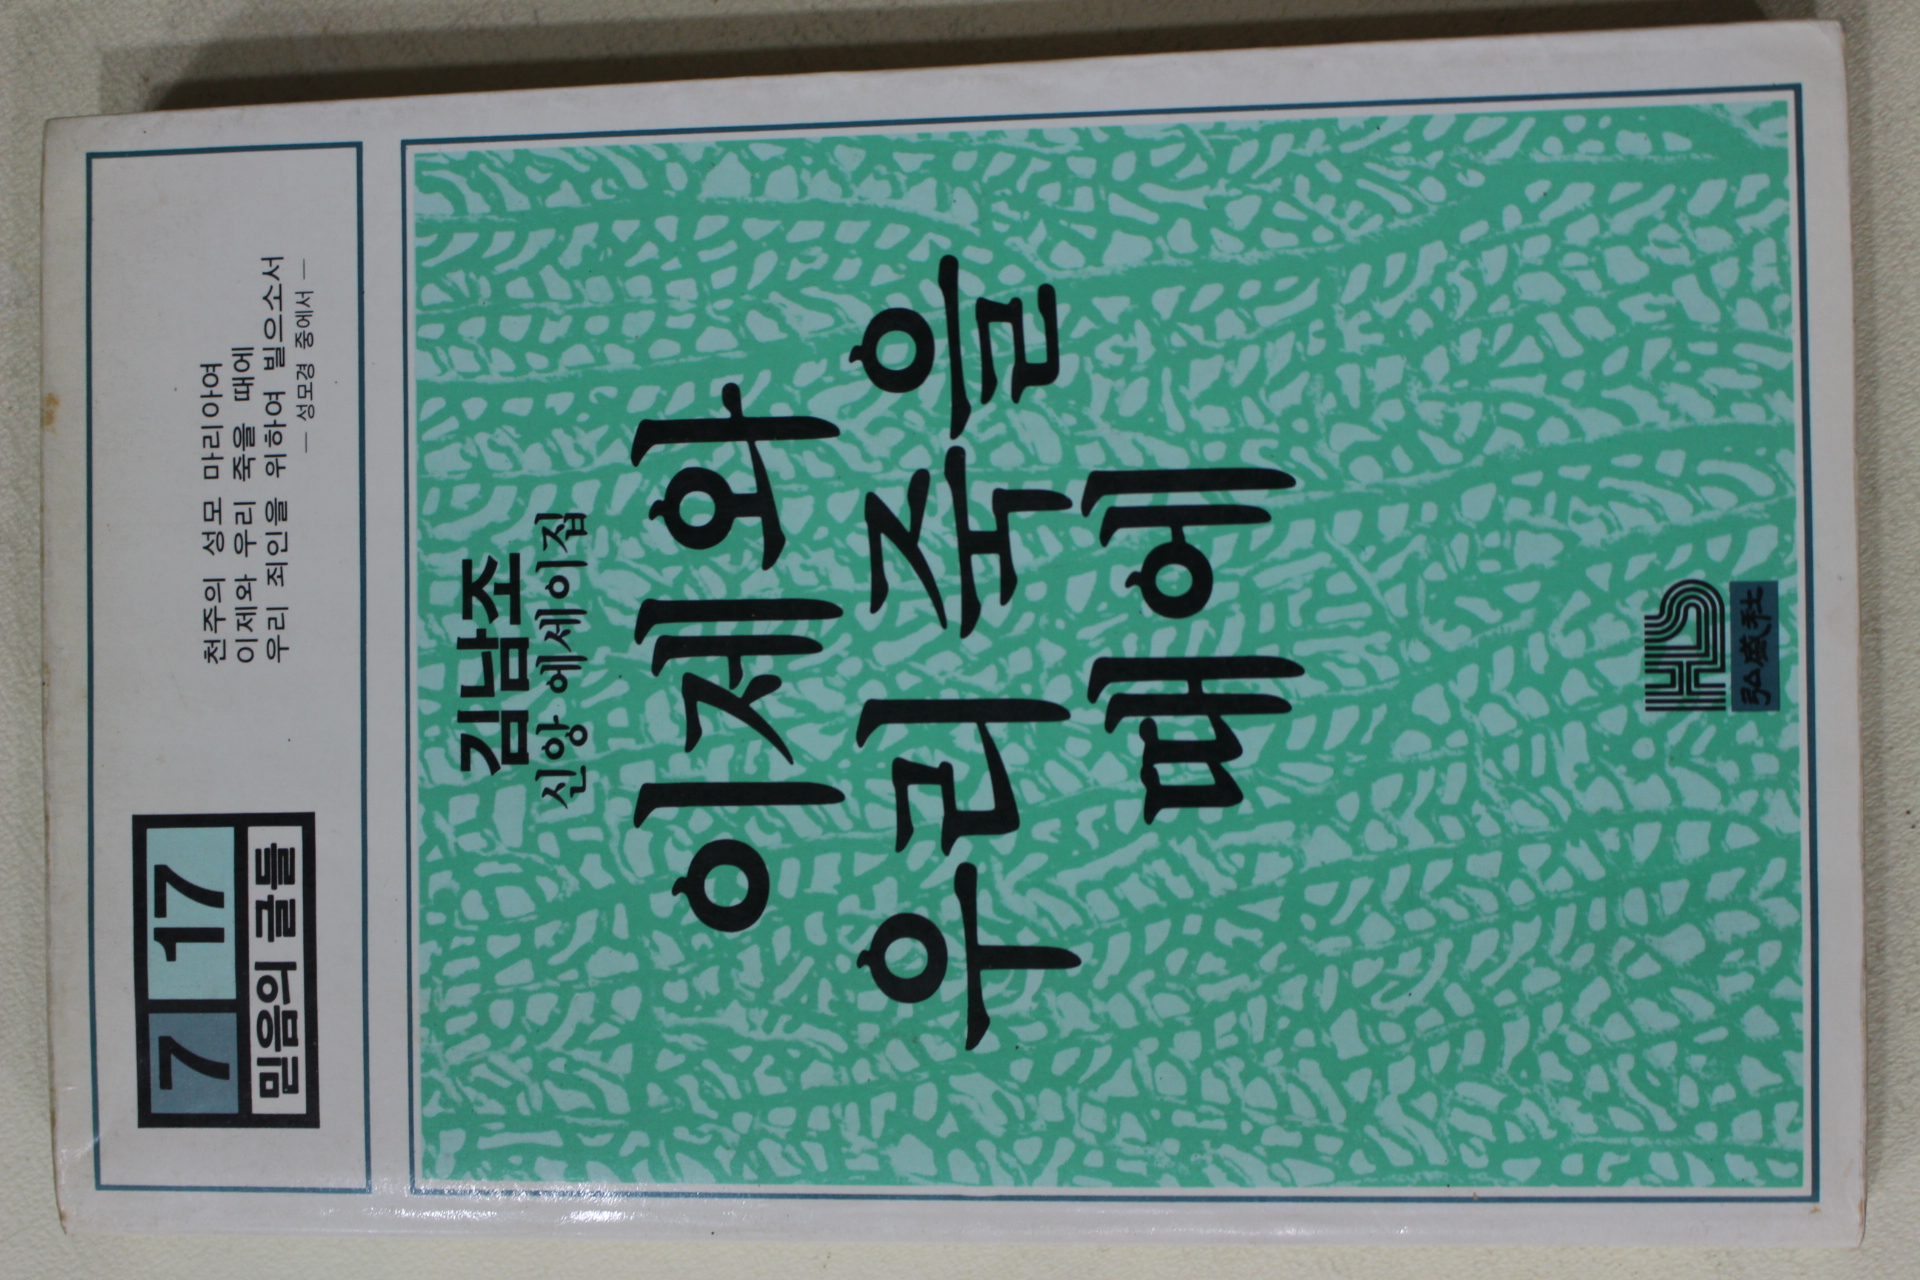 7 17
믿음의 글들
천주의 성모 마리아여
이제와 우리 죽을 때에
우리 죄인을 위하여 빌으소서
— 성모경 중에서 —
김남조
신앙 에세이집
이제와
우리 죽을
때에
HS
弘盛社